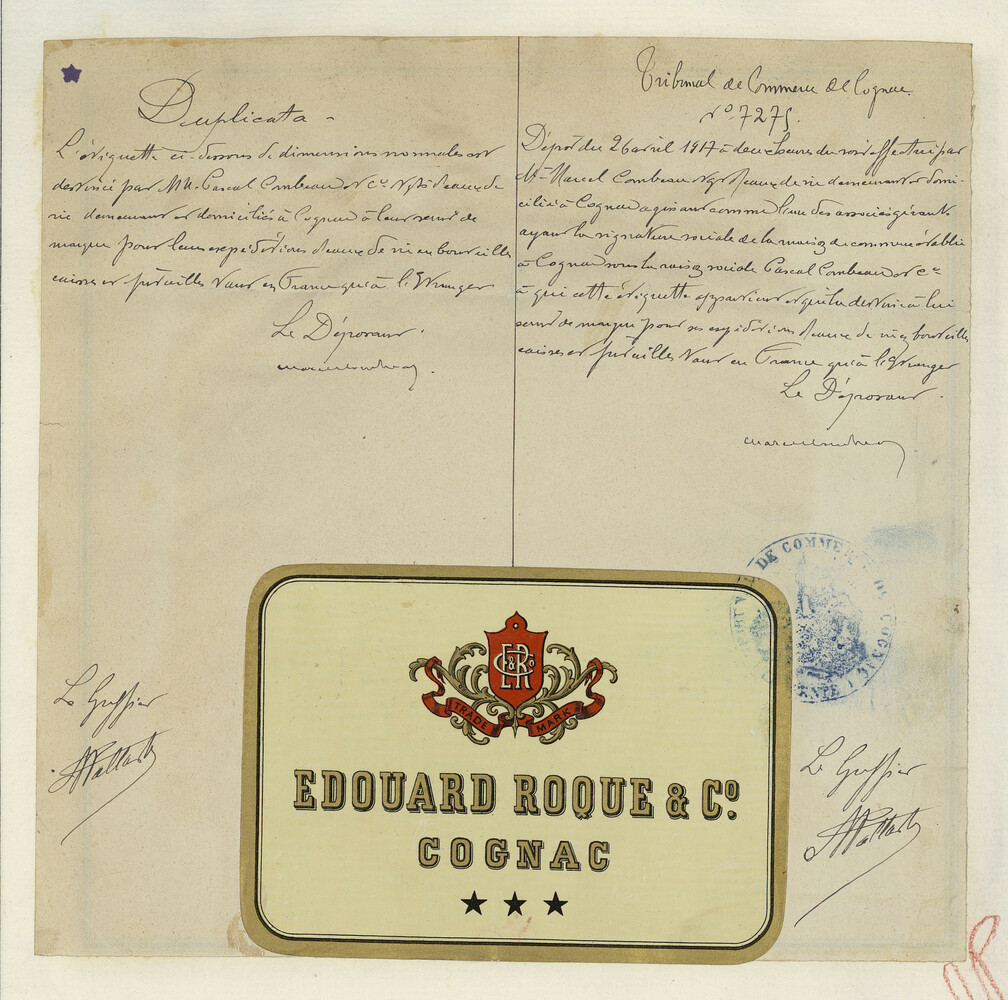 Duplicata
L'étiquette ci-dessous de dimensions normales est
destinée par MM. Pascal Combeau et Cº Nég.ts d'eaux de
vie demeurant et domiciliés à Cognac à leur servir de
marque pour leurs expéditions d'eaux de vie en bouteilles
caisses et futailles tant en France qu'à l'étranger
Le Déposant.
Tribunal de Commerce de Cognac.
Nº 7275.
Dépôt du 26 avril 1917 à deux heures du soir effectué par
Mr Marcel Combeau Nég. d'eaux de vie demeurant et domi-
cilié à Cognac agissant comme l'un des associés gérants
ayant la signature sociale de la maison de commerce établie
à Cognac sous la raison sociale Pascal Combeau et Cie
à qui cette étiquette appartient et qui la destine à lui
servir de marque pour ses expéditions d'eaux de vie en bouteilles
caisses et futailles tant en France qu'à l'étranger
Le Déposant.
DE COMMERCE DE COGNAC
Le Greffier
Le Greffier
E R & Co
TRADE MARK
EDOUARD ROQUE & Cº
COGNAC